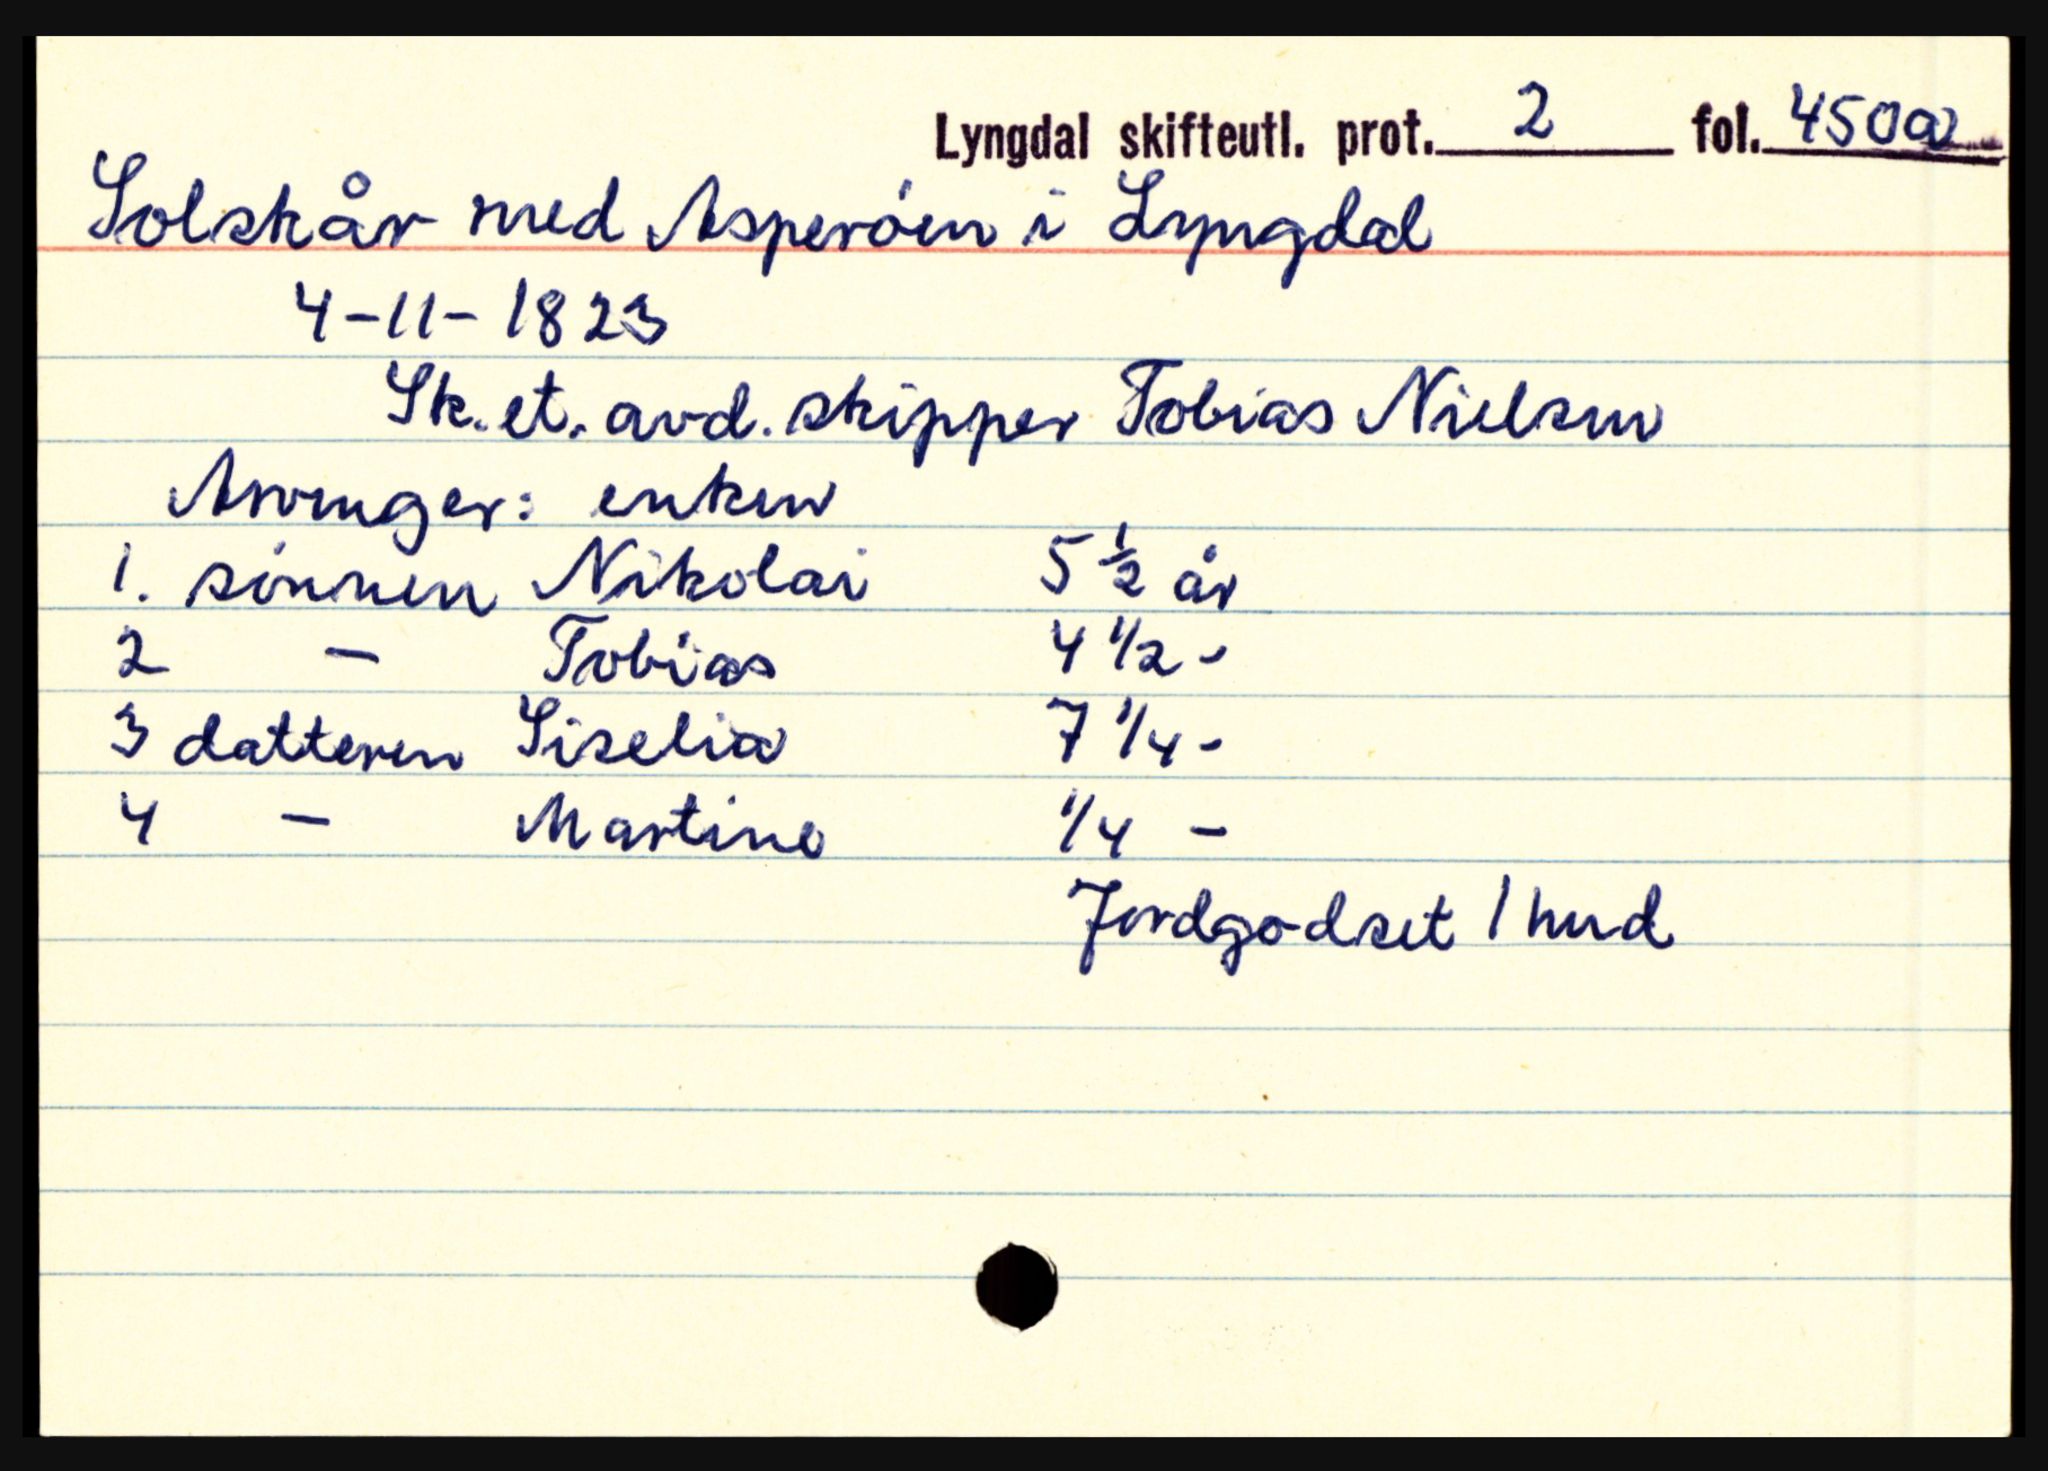 Lyngdal skifteutl. prot. 2 fol. 450a
Solskår med Asperóen i Lyngdal
4-11-1823
Sk. et. avd. skipper Tobias Nielsen
Arvinger: enken
1. sónnen Nikolai 5 1/2 år
2 - Tobias 4 1/2 -
3 datteren Siselia 7 1/4 -
4 - Martine 1/4 -
Jordgodset 1 hud